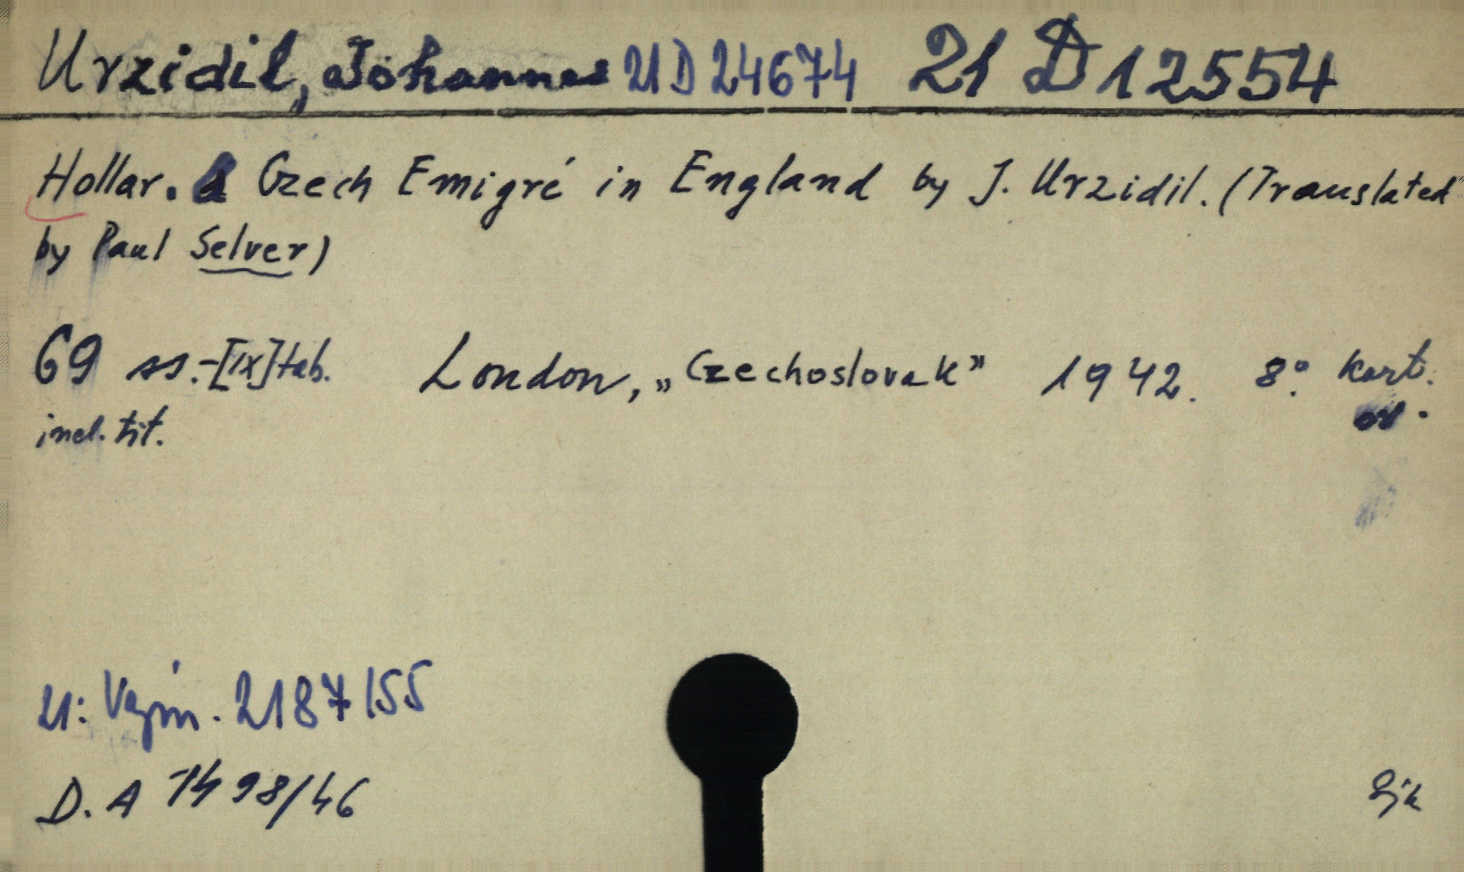 Urzidil, Johannes 21 D 24674 21 D 12554
Hollar. a Czech Emigré in England by J. Urzidil. (Translated
by Paul Selver)
69 ss.-[IX] tab. London, „Czechoslovak" 1942. 8°. kart.
incl. tit.
21: Vým. 2187/55
D. A 1498/46